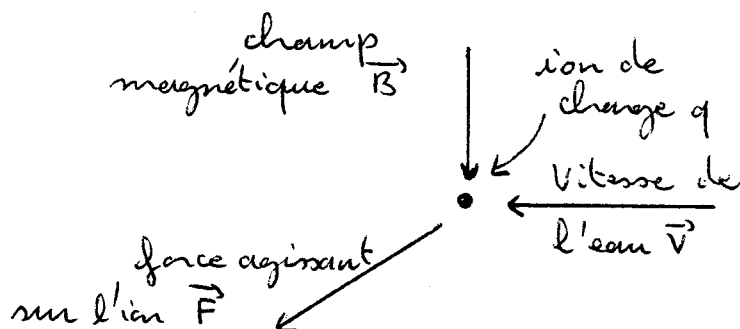 champ
magnétique B
ion de
charge q
Vitesse de
l'eau V
force agissant
sur l'ion F